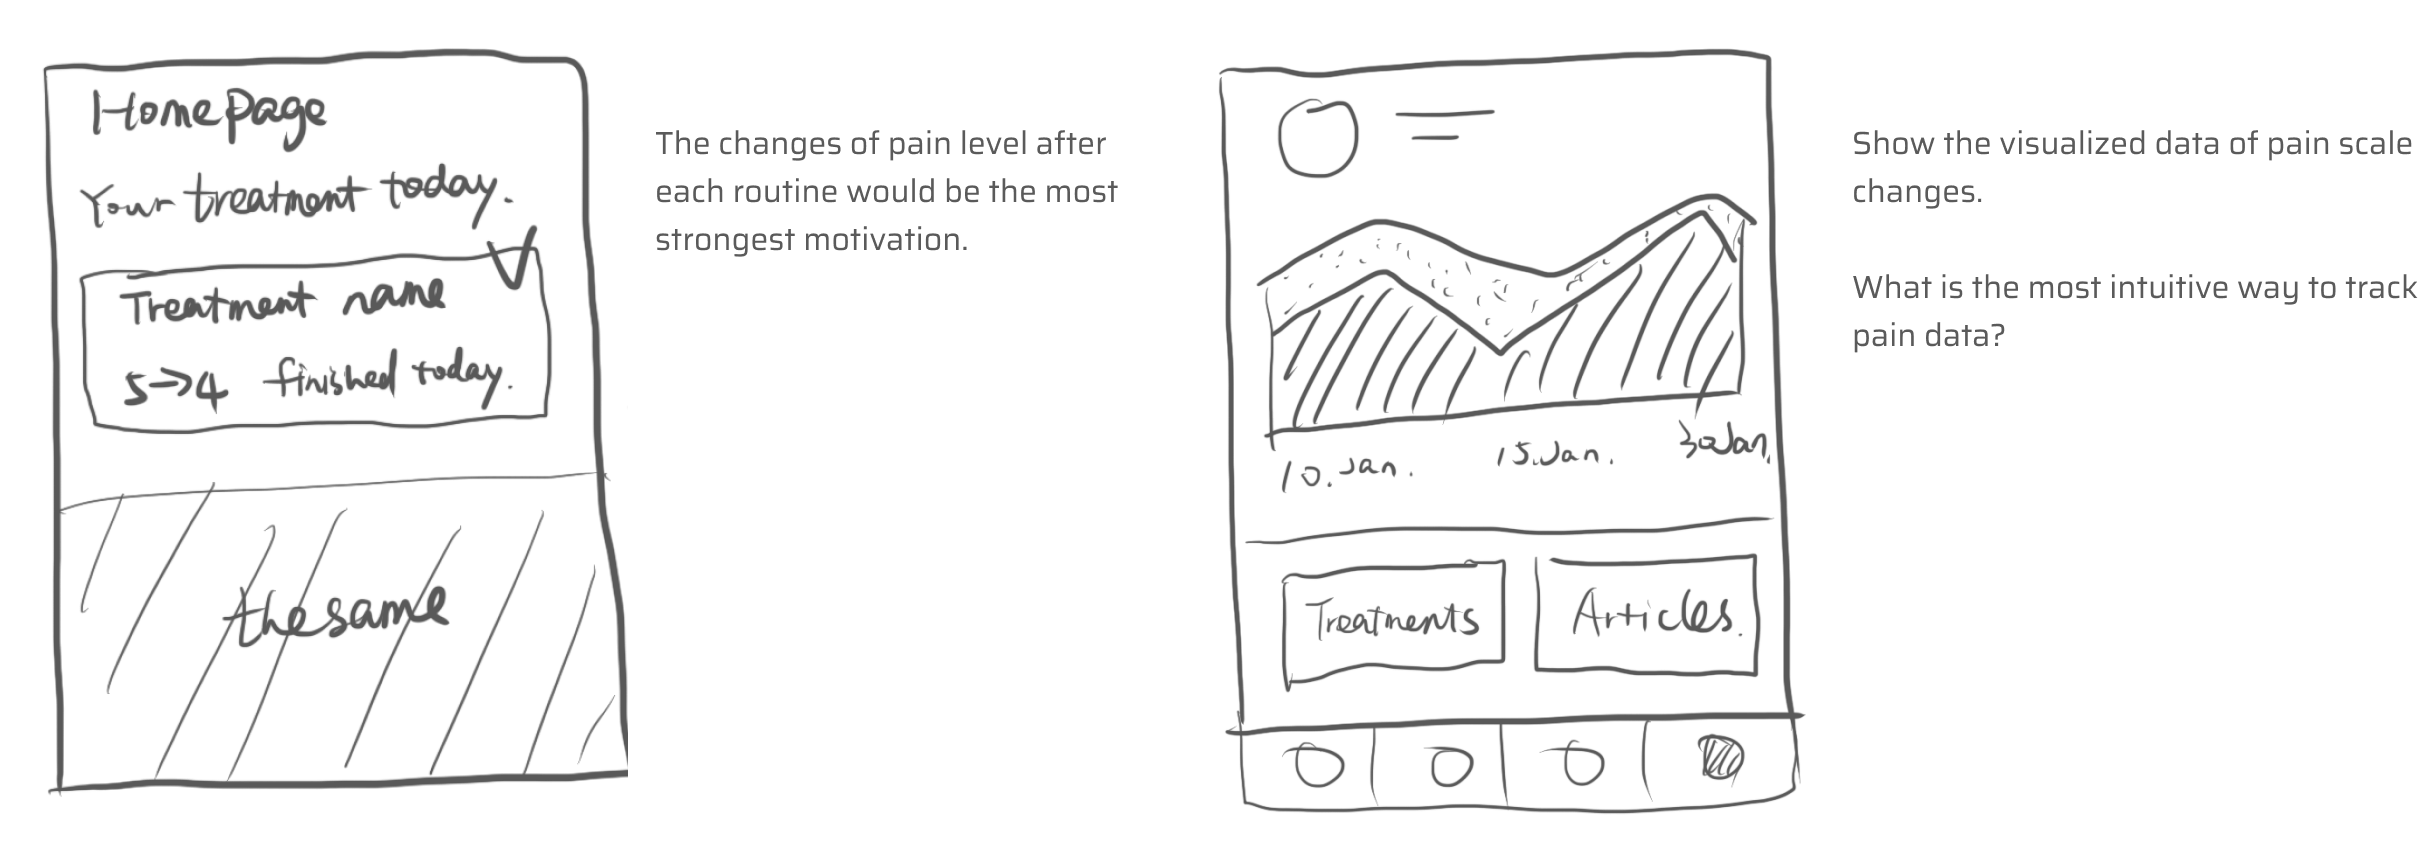 Homepage
Your treatment today.
Treatment name
5→4 finished today.
the same
The changes of pain level after
each routine would be the most
strongest motivation.
10. Jan.
15. Jan.
30 Jan.
Treatments
Articles.
Show the visualized data of pain scale
changes.
What is the most intuitive way to track
pain data?